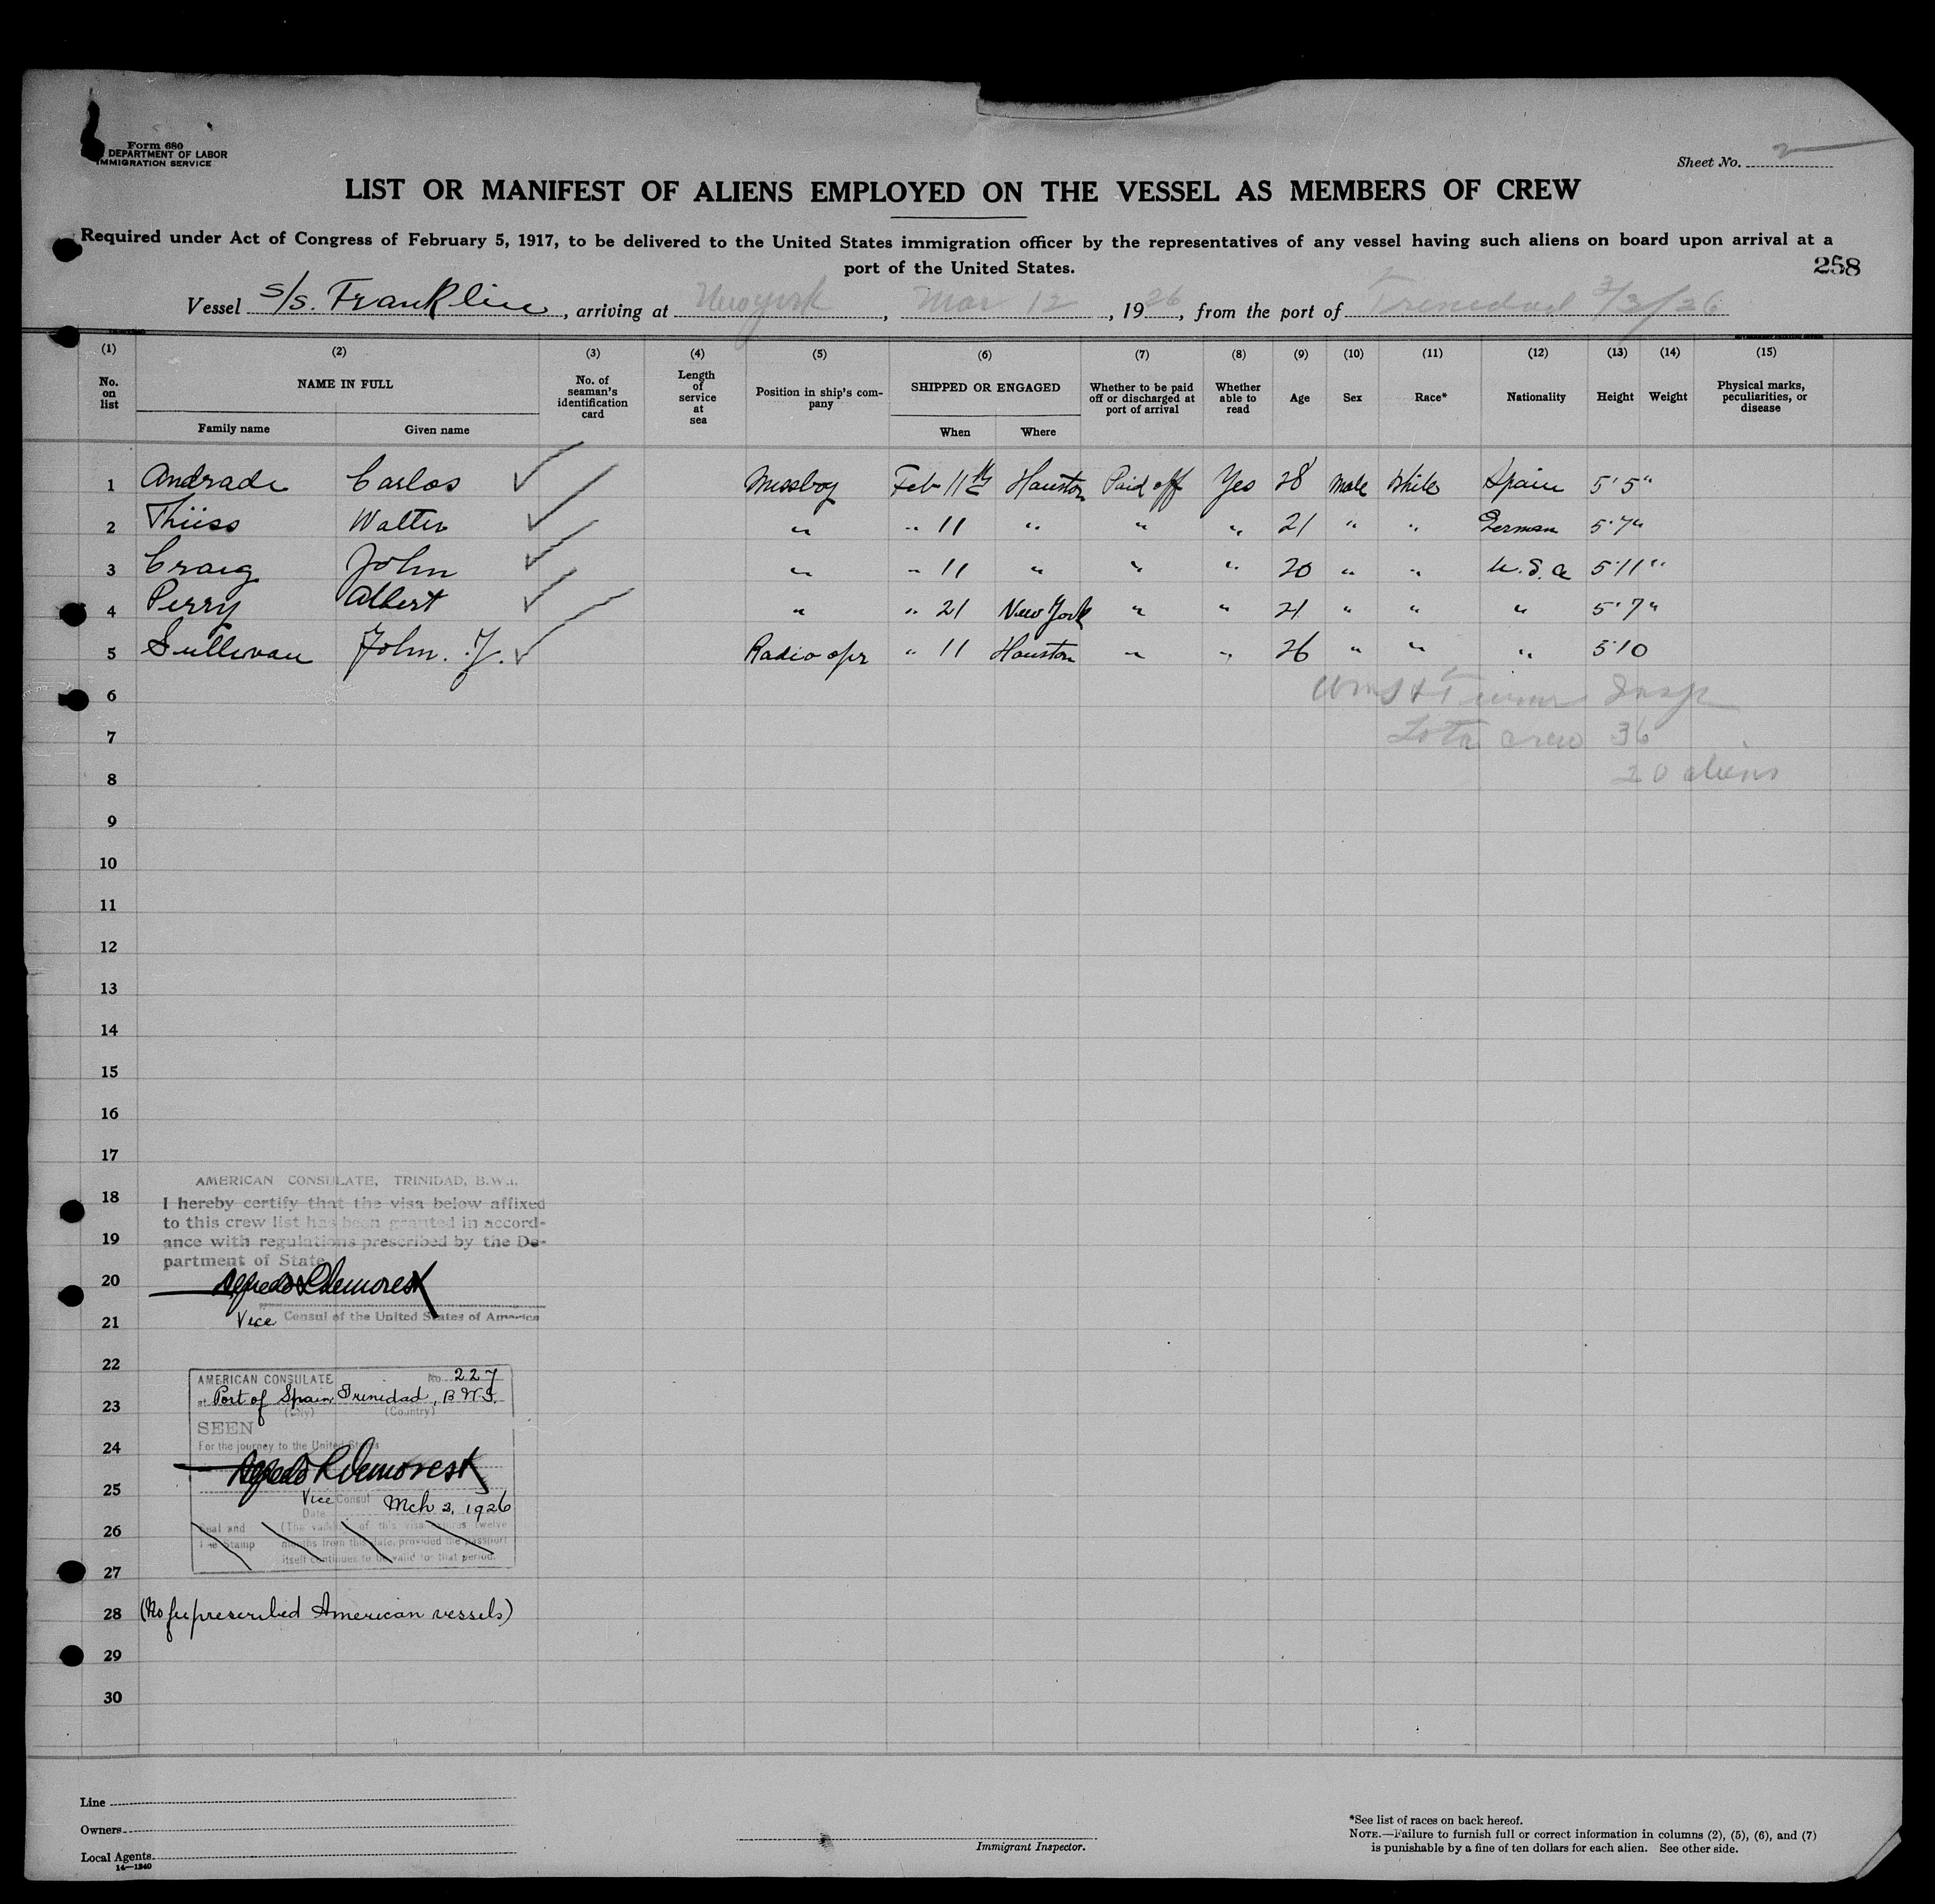 Form 680
DEPARTMENT OF LABOR
IMMIGRATION SERVICE
Sheet No. 2
LIST OR MANIFEST OF ALIENS EMPLOYED ON THE VESSEL AS MEMBERS OF CREW
Required under Act of Congress of February 5, 1917, to be delivered to the United States immigration officer by the representatives of any vessel having such aliens on board upon arrival at a
port of the United States.
258
Vessel S/S. Franklin, arriving at New York, Mar 12, 1926, from the port of Trinidad 3/3/26
(1) (2) (3) (4) (5) (6) (7) (8) (9) (10) (11) (12) (13) (14) (15)
No. on list NAME IN FULL No. of seaman's identification card Length of service at sea Position in ship's company SHIPPED OR ENGAGED Whether to be paid off or discharged at port of arrival Whether able to read Age Sex Race* Nationality Height Weight Physical marks, peculiarities, or disease
Family name Given name When Where
1 Andrade Carlos ✓ Messboy Feb 11th Houston Paid off Yes 28 Male White Spain 5'5"
2 Thiiss Walter ✓ " " 11 " " " 21 " " German 5'7"
3 Craig John ✓ " " 11 " " " 20 " " U.S.a 5'11"
4 Perry Albert ✓ " " 21 New York " " 21 " " " 5'7"
5 Sullivan John. J. ✓ Radio opr " 11 Houston " " 26 " " " 5'10
6 Insp
7 crew 36
8 20 aliens
9
10
11
12
13
14
15
16
17
AMERICAN CONSULATE, TRINIDAD, B.W.I.
18 I hereby certify that the visa below affixed
to this crew list has been granted in accord-
19 ance with regulations prescribed by the De-
partment of State
20 Alfredo L Demorest
21 Vice Consul of the United States of America
22
AMERICAN CONSULATE No. 227
23 at Port of Spain Trinidad, B.W.I.
(City) (Country)
SEEN
24 For the journey to the United States
Alfredo L Demorest
25 Vice Consul
Date Mch 3, 1926
26 Seal and Fee Stamp (The validity of this visa expires twelve
months from this date, provided the passport
27 itself continues to be valid for that period.
28 (No fee prescribed American vessels)
29
30
Line
Owners
Local Agents
14—1240
Immigrant Inspector.
*See list of races on back hereof.
NOTE.—Failure to furnish full or correct information in columns (2), (5), (6), and (7)
is punishable by a fine of ten dollars for each alien. See other side.